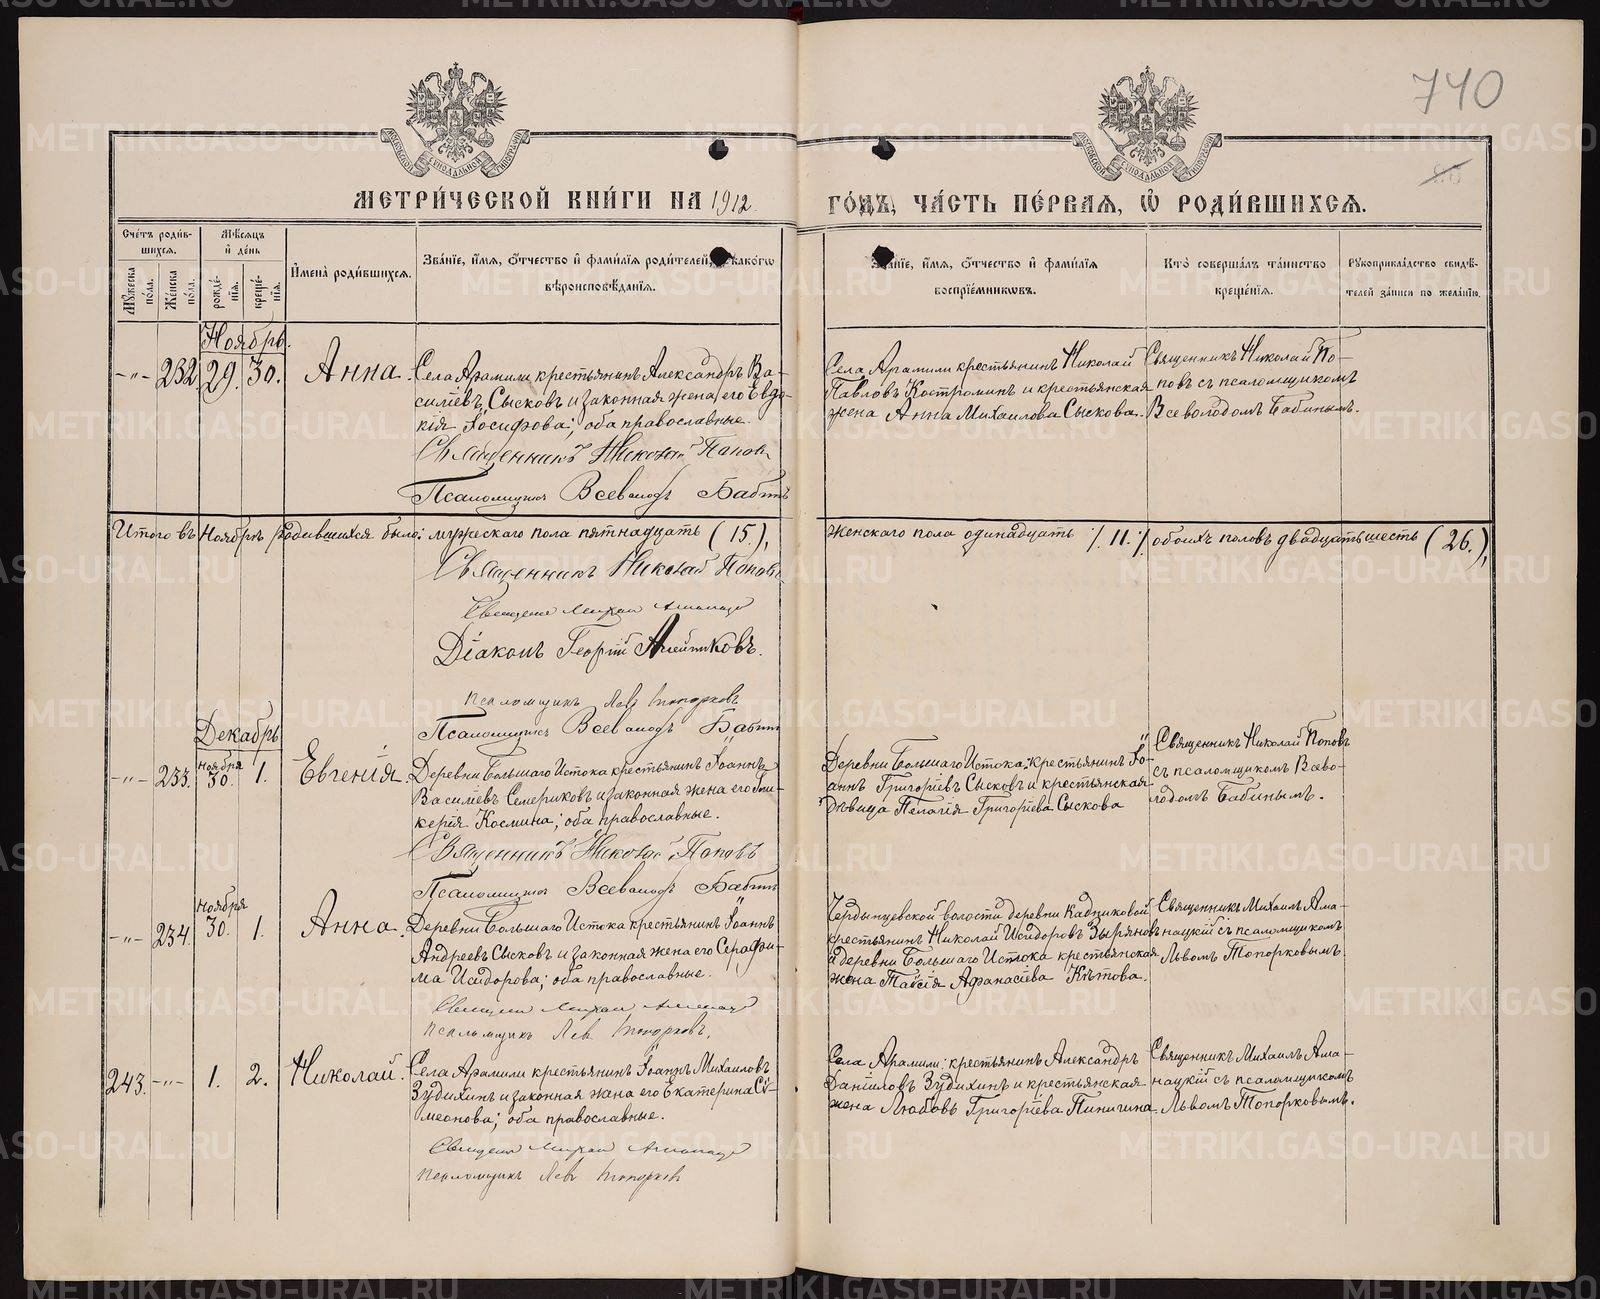 740
МЕТРИ́ЧЕСКОЙ КНИ́ГИ НА 1912 ГО́ДЪ, ЧА́СТЬ ПЕ́РВАѦ, Ѡ҆ РОДИ́ВШИХСѦ.
Сче́тъ роди́в-
шихсѧ.
Мꙋ́жеска по́ла.
Же́нска по́ла.
Мѣ́сѧцъ
и҆ де́нь
рожде́-
нїѧ.
креще́-
нїѧ.
И҆мена̀ роди́вшихсѧ.
Зва́нїе, и҆́мѧ, ѻ҆́тчество и҆ фами́лїѧ роди́телей, како́гѡ
вѣроисповѣ́данїѧ.
Зва́нїе, и҆́мѧ, ѻ҆́тчество и҆ фами́лїѧ
воспрїе́мникѡвъ.
Кто̀ соверша́лъ та́инство
креще́нїѧ.
Рꙋкоприкла́дство свидѣ́-
телей за́писи по жела́нїю.
Ноябрь.
-"- 232. 29. 30. Анна.
Села Арамили крестьянинъ Александръ Ва-
силіевъ Сысковъ и законная жена его Евдо-
кія Іосифова; оба православные.
Священникъ Николай Поповъ
Псаломщикъ Всеволодъ Бабинъ
Села Арамили крестьянинъ Николай
Павловъ Костроминъ и крестьянская
жена Анна Михаилова Сыскова.
Священникъ Николай По-
повъ съ псаломщикомъ
Всеволодомъ Бабинымъ.
Итого въ Ноябрѣ родившихся было: мужескаго пола пятнадцать (15.), женскаго пола одинадцать /.11./. обоихъ половъ двадцать шесть (26.),
Священникъ Николай Поповъ
Священникъ Михаил
Діаконъ Георгій
Псаломщикъ Левъ Топорковъ
Псаломщикъ Всеволодъ Бабинъ
Декабрь
-"- 233. ноября 30. 1. Евгенія.
Деревни Большаго Истока крестьянинъ Іоаннъ
Василіевъ Семериковъ и законная жена его Гли-
керія Космина; оба православные.
Священникъ Николай Поповъ
Псаломщикъ Всеволодъ Бабинъ
Деревни Большаго Истока: крестьянинъ Іо-
аннъ Григоріевъ Сысковъ и крестьянская
дѣвица Пелагія Григоріева Сыскова
Священникъ Николай Поповъ
съ псаломщикомъ Всево-
лодомъ Бабинымъ.
-"- 234. ноября 30. 1. Анна.
Деревни Большаго Истока крестьянинъ Іоаннъ
Андреевъ Сысковъ и законная жена его Серафи-
ма Исидорова; оба православные.
Псаломщикъ Левъ Топорковъ.
деревни Кадниковой
крестьянинъ Николай Исидоровъ Зыряновъ
и деревни Большаго Истока крестьянская
жена Таисія Афанасіева Кѣтова.
Священникъ Михаилъ Ама-
нацкій съ псаломщикомъ
Львомъ Топорковымъ.
243. -"- 1. 2. Николай.
Села Арамили крестьянинъ Іоаннъ Михаиловъ
Зудихинъ и законная жена его Екатерина Си-
меонова; оба православные.
Псаломщикъ Левъ Топорковъ
Села Арамили: крестьянинъ Александръ
Даніиловъ Зудихинъ и крестьянская
жена Любовь Григоріева Пинигина.
Священникъ Михаилъ Ама-
нацкій съ псаломщикомъ
Львомъ Топорковымъ.
METRIKI.GASO-URAL.RU